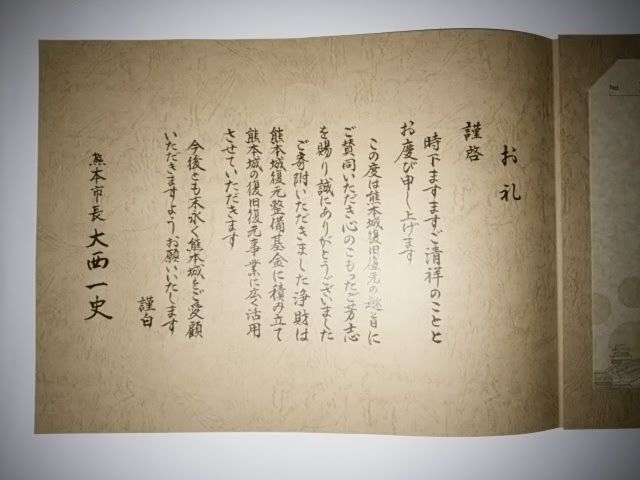 お礼
謹啓
時下ますますご清祥のことと
お慶び申し上げます
この度は熊本城復旧復元の趣旨に
ご賛同いただき心のこもったご芳志
を賜り誠にありがとうございました
ご寄附いただきました浄財は
熊本城復元整備基金に積み立て
熊本城の復旧復元事業に広く活用
させていただきます
今後とも末永く熊本城をご愛顧
いただきますようお願いいたします
謹白
熊本市長 大西一史
No.